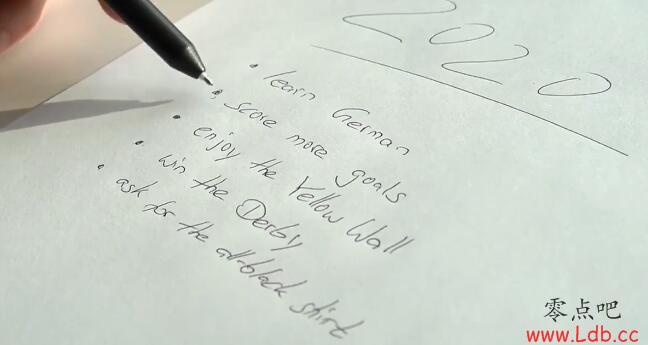 2020
learn German
score more goals
enjoy the Yellow Wall
win the Derby
ask for the all-black shirt
零点吧
www.Ldb.cc